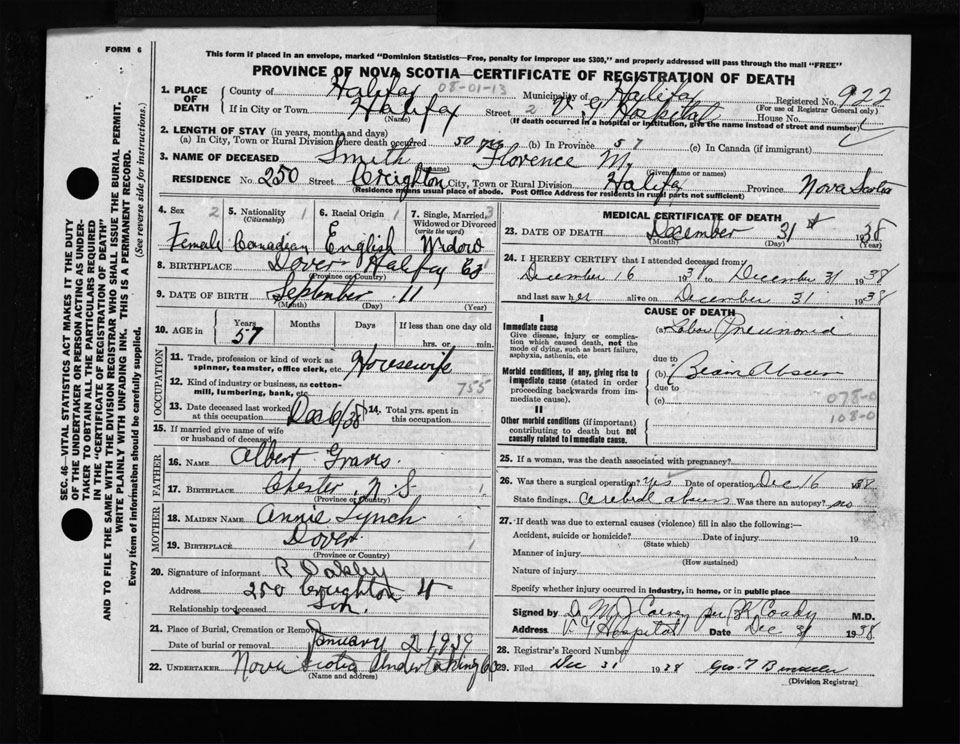 FORM 6
This form if placed in an envelope, marked "Dominion Statistics—Free, penalty for improper use $300," and properly addressed will pass through the mail "FREE"
PROVINCE OF NOVA SCOTIA—CERTIFICATE OF REGISTRATION OF DEATH
SEC. 46—VITAL STATISTICS ACT MAKES IT THE DUTY
OF THE UNDERTAKER OR PERSON ACTING AS UNDER-
TAKER TO OBTAIN ALL THE PARTICULARS REQUIRED
IN THE "CERTIFICATE OF REGISTRATION OF DEATH"
AND TO FILE THE SAME WITH THE DIVISION REGISTRAR WHO SHALL ISSUE THE BURIAL PERMIT.
WRITE PLAINLY WITH UNFADING INK. THIS IS A PERMANENT RECORD.
Every item of information should be carefully supplied. (See reverse side for instructions.)
1. PLACE OF DEATH
County of Halifax 08-01-13 Municipality of Halifax Registered No. 922
(For use of Registrar General only)
If in City or Town Halifax Street 2 V. G Hospital House No.
(Name) (If death occurred in a hospital or institution, give the name instead of street and number)
2. LENGTH OF STAY (in years, months and days)
(a) In City, Town or Rural Division where death occurred 50 yrs (b) In Province 57 (c) In Canada (if immigrant)
3. NAME OF DECEASED Smith Florence M.
(Given name or names)
RESIDENCE No. 250 Street Creighton City, Town or Rural Division Halifax Province Nova Scotia
(Residence means usual place of abode. Post Office Address for residents in rural parts not sufficient)
4. Sex 2 Female
5. Nationality 1 (Citizenship) Canadian
6. Racial Origin 1 English
7. Single, Married, Widowed or Divorced 3 (write the word) Widow
8. BIRTHPLACE Dover Halifax Co
(Province or Country)
9. DATE OF BIRTH September 11
(Month) (Day) (Year)
10. AGE in Years 57 Months Days If less than one day old
hrs. or min.
OCCUPATION
11. Trade, profession or kind of work as spinner, teamster, office clerk, etc. Housewife
12. Kind of industry or business, as cotton-mill, lumbering, bank, etc. 755
13. Date deceased last worked at this occupation Dec 6/38
14. Total yrs. spent in this occupation
15. If married give name of wife or husband of deceased
FATHER
16. NAME Albert Graves
17. BIRTHPLACE Chester N.S 1
(Province or Country)
MOTHER
18. MAIDEN NAME Annie Lynch
19. BIRTHPLACE Dover 1
(Province or Country)
20. Signature of informant R Oakley
Address 250 Creighton
Relationship to deceased Son.
21. Place of Burial, Cremation or Removal
Date of burial or removal January 2 1939
22. UNDERTAKER Nova Scotia Undertaking Co
(Name and address)
MEDICAL CERTIFICATE OF DEATH
23. DATE OF DEATH December 31st 1938
(Month) (Day) (Year)
24. I HEREBY CERTIFY that I attended deceased from:
December 16 1938 to December 31 1938
and last saw her alive on December 31 1938
CAUSE OF DEATH
I
Immediate cause
Give disease, injury or complication which caused death, not the mode of dying, such as heart failure, asphyxia, asthenia, etc
(a) Lobar Pneumonia
due to
Morbid conditions, if any, giving rise to immediate cause (stated in order proceeding backwards from immediate cause).
(b) Brain Abscess
due to
(c) 078-0
108-0
II
Other morbid conditions (if important) contributing to death but not causally related to immediate cause.
25. If a woman, was the death associated with pregnancy?
26. Was there a surgical operation? Yes Date of operation Dec 16 1938
State findings. cerebral abscess Was there an autopsy? no
27. If death was due to external causes (violence) fill in also the following:—
Accident, suicide or homicide? Date of injury 19
(State which)
Manner of injury
(How sustained)
Nature of injury
Specify whether injury occurred in industry, in home, or in public place
Signed by M.J. per Coady M.D.
Address V. G Hospital Date Dec 31 1938
28. Registrar's Record Number
29. Filed Dec 31 1938 Geo. T
(Division Registrar)